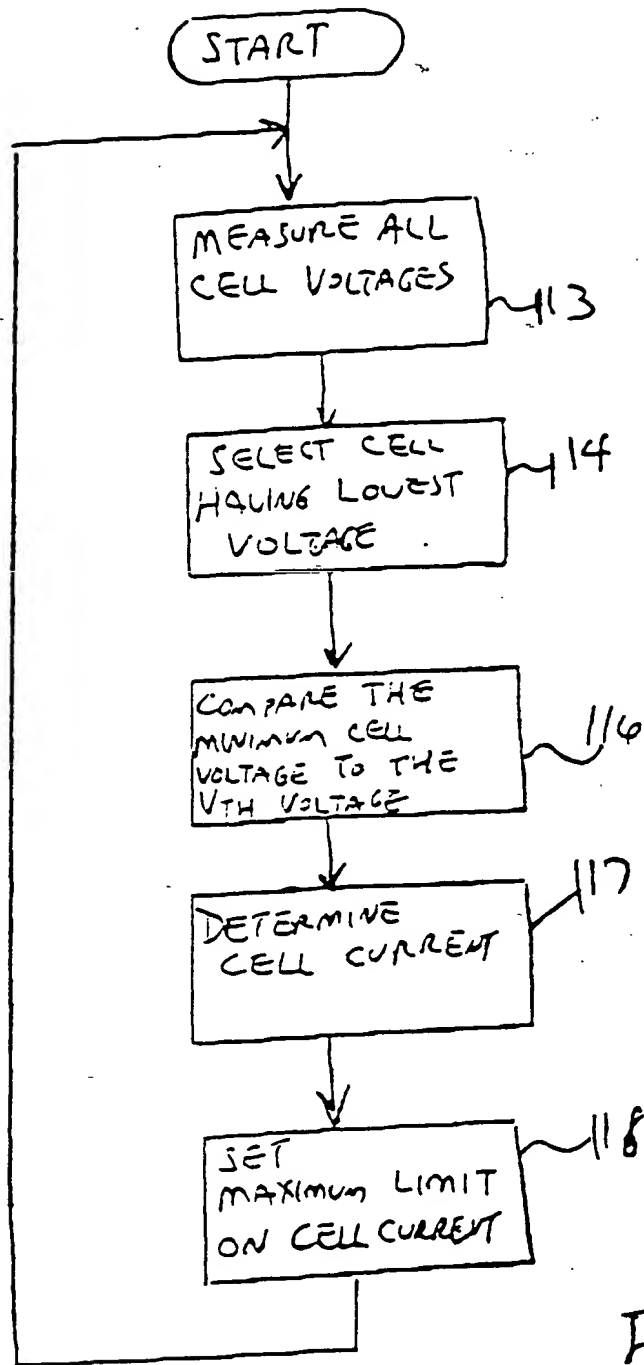 START
MEASURE ALL
CELL VOLTAGES
113
SELECT CELL
HAVING LOWEST
VOLTAGE
114
COMPARE THE
MINIMUM CELL
VOLTAGE TO THE
VTH VOLTAGE
116
DETERMINE
CELL CURRENT
117
SET
MAXIMUM LIMIT
ON CELL CURRENT
118